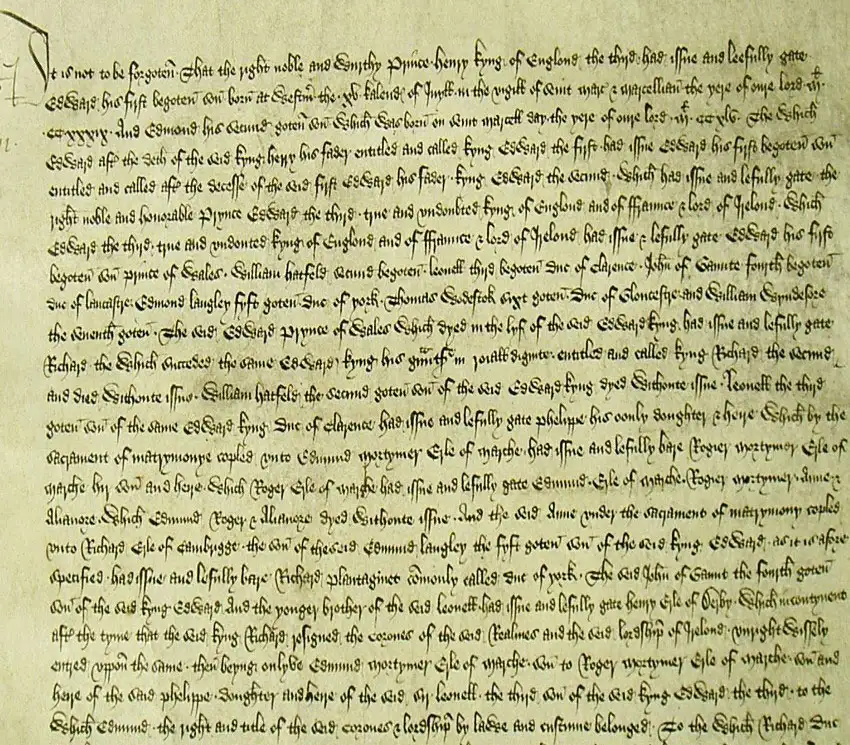 It is not to be forgoten · That the right noble and wurthy Prince · henry kyng · of Englond the third · had issue and leefully gate
Edward his first begoten son born at Westm̄ the · xv · kalend of Juyll in the vigill of Seint marc & marcellian the yere of oure lord · M ·
CCxxxix · And Edmond his secund goten son which was born on Seint marcell day · the yere of oure lord · M · CCxlv · The which
Edward aft̄ the deth of the seid kyng henry his fader entitled and called kyng Edward the first · had issue Edward his first begoten son
entitled and called aft̄ the decesse of the seid first Edward his fader · kyng Edward the secund · which had issue and lefully gate the
right noble and honorable Prynce Edward the third · true and undoubted kyng of Englond and of ffraunce & lord of Irelond · which
Edward the third · true and undouted kyng of Englond and of ffraunce & lord of Irelond had issue & lefully gate Edward his first
begoten son prince of Wales · William hatfeld secund begoten · leonell third begoten duc of Clarence · John of Gaunte fourth begoten
duc of lancastre · Edmond langley fyft goten duc of york · Thomas Wodestok sixt goten duc of Gloucestre and William Wyndesore
the seuenth goten · The seid Edward Prynce of Wales which dyed in the lyf of the seid Edward kyng had issue and lefully gate
Richard the which succeded the same Edward kyng his in roiall dignite · entitled and called kyng Richard the secund
and died withoute issue · William hatfeld the second goten son of the seid Edward kyng dyed withoute issue · leonell the third
goten son of the same Edward kyng duc of Clarence had issue and lefully gate phelippe his oonly doughter & heire which by the
sacrament of matrymonye copled unto Edmund mortymer Erle of marche · had issue and lefully bare Rogier mortymer Erle of
marche hir son and heire · which Roger Erle of marche had issue and lefully gate Edmund · Erle of marche · Rogier mortymer · Anne &
Alianore · which Edmund Roger & Alianore dyed withoute issue · And the seid Anne under the sacrament of matrymony copled
unto Richard Erle of Cambrigge the son of the seid Edmund langley the fyft goten son of the seid kyng Edward as it is afore
specified · had issue and lefully bare Richard plantaginet com̄only called duc of york · The seid John of Gaunt the fourth goten
son of the seid kyng Edward And the yonger brother of the seid leonell · had issue and lefully gate henry Erle of Derby · which incontynent
aft̄ the tyme that the seid kyng Richard resigned the corones of the seid Realmes and the seid lordship of Irelond · unrightwissely
entred uppon the same · then beyng onlyve Edmund mortymer Erle of marche · son to Roger mortymer Erle of marche son and
heire of the said phelippe doughter and heire of the seid sir leonell the third son of the seid kyng Edward the third · to the
which Edmund · the right and title of the seid corones & lordship by lawe and custume belonged · To the which Richard duc